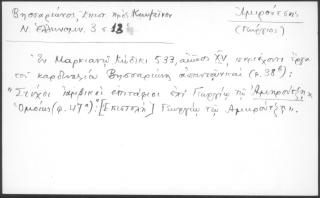 Βησσαρίωνος, Επιστ. πρὸς Κωνσταντῖνον
Ἀμιρούτσης
Ν. Ἑλληνομν. 3 σ. 12
(Γεώργιος)
Ἐν Μαρκιανῷ Κώδικι 533, αἰῶνος XV, περιέχοντι ἔργα
τοῦ καρδιναλίου Βησσαρίωνος ἀπαντῶνται (φ. 38β):
"Στίχοι ἰαμβικοὶ ἐπιτάφιοι ἐπὶ Γεωργίῳ τῷ Ἀμηρούτζῃ"
Ὁμοίως (φ. 47α): "[Ἐπιστολὴ] Γεωργίῳ τῷ Ἀμιρούτζῃ".